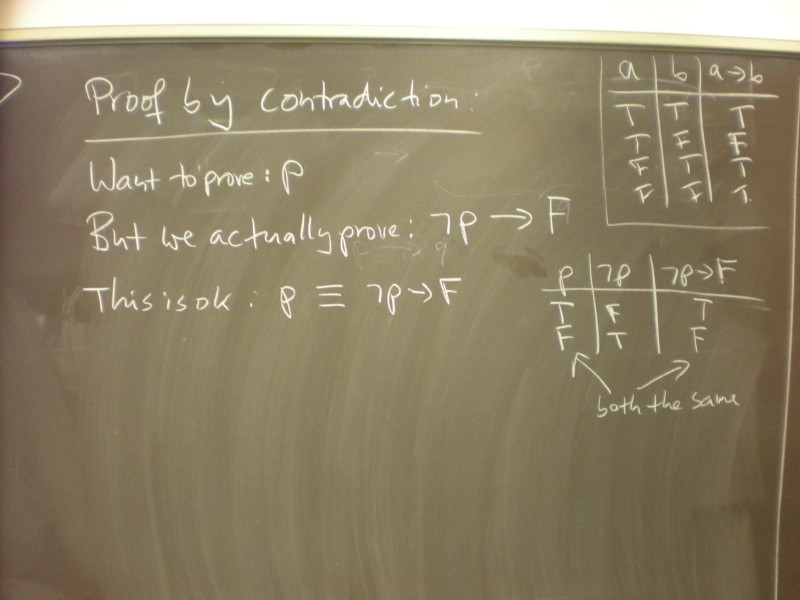 Proof by contradiction:
Want to prove: p
But we actually prove: ¬p → F
This is ok: p ≡ ¬p → F
a b a→b
T T T
T F F
F T T
F F T
p ¬p ¬p→F
T F T
F T F
both the same